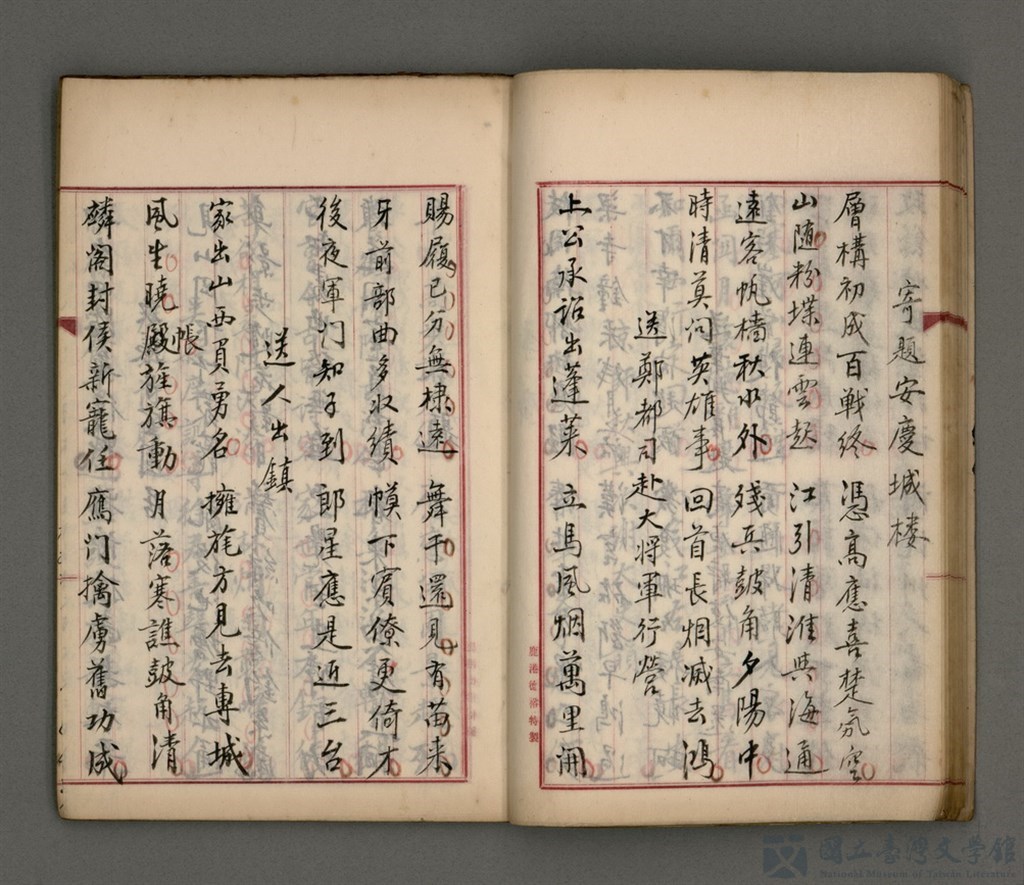 寄題安慶城楼
層構初成百戦終　憑高應喜楚氛空
山随粉堞連雲起　江引清淮與海通
遠客帆檣秋水外　殘兵鼓角夕陽中
時清莫问英雄事　回首長烟滅去鴻
送鄭都司赴大将軍行營
上公承詔出蓬萊　立馬風烟萬里開
鹿港信楷特製
賜履已分無棣遠　舞干還見有苗来
牙前部曲多收績　幙下賓僚更倚才
後夜軍门知子到　郎星應是近三台
送人出鎮
家出山西負勇名　擁旄方見去專城
風生曉殿帳旌旗動　月落寒譙鼓角清
麟阁封侯新寵任　鴈门擒虜舊功成
國立臺灣文學館
National Museum of Taiwan Literature